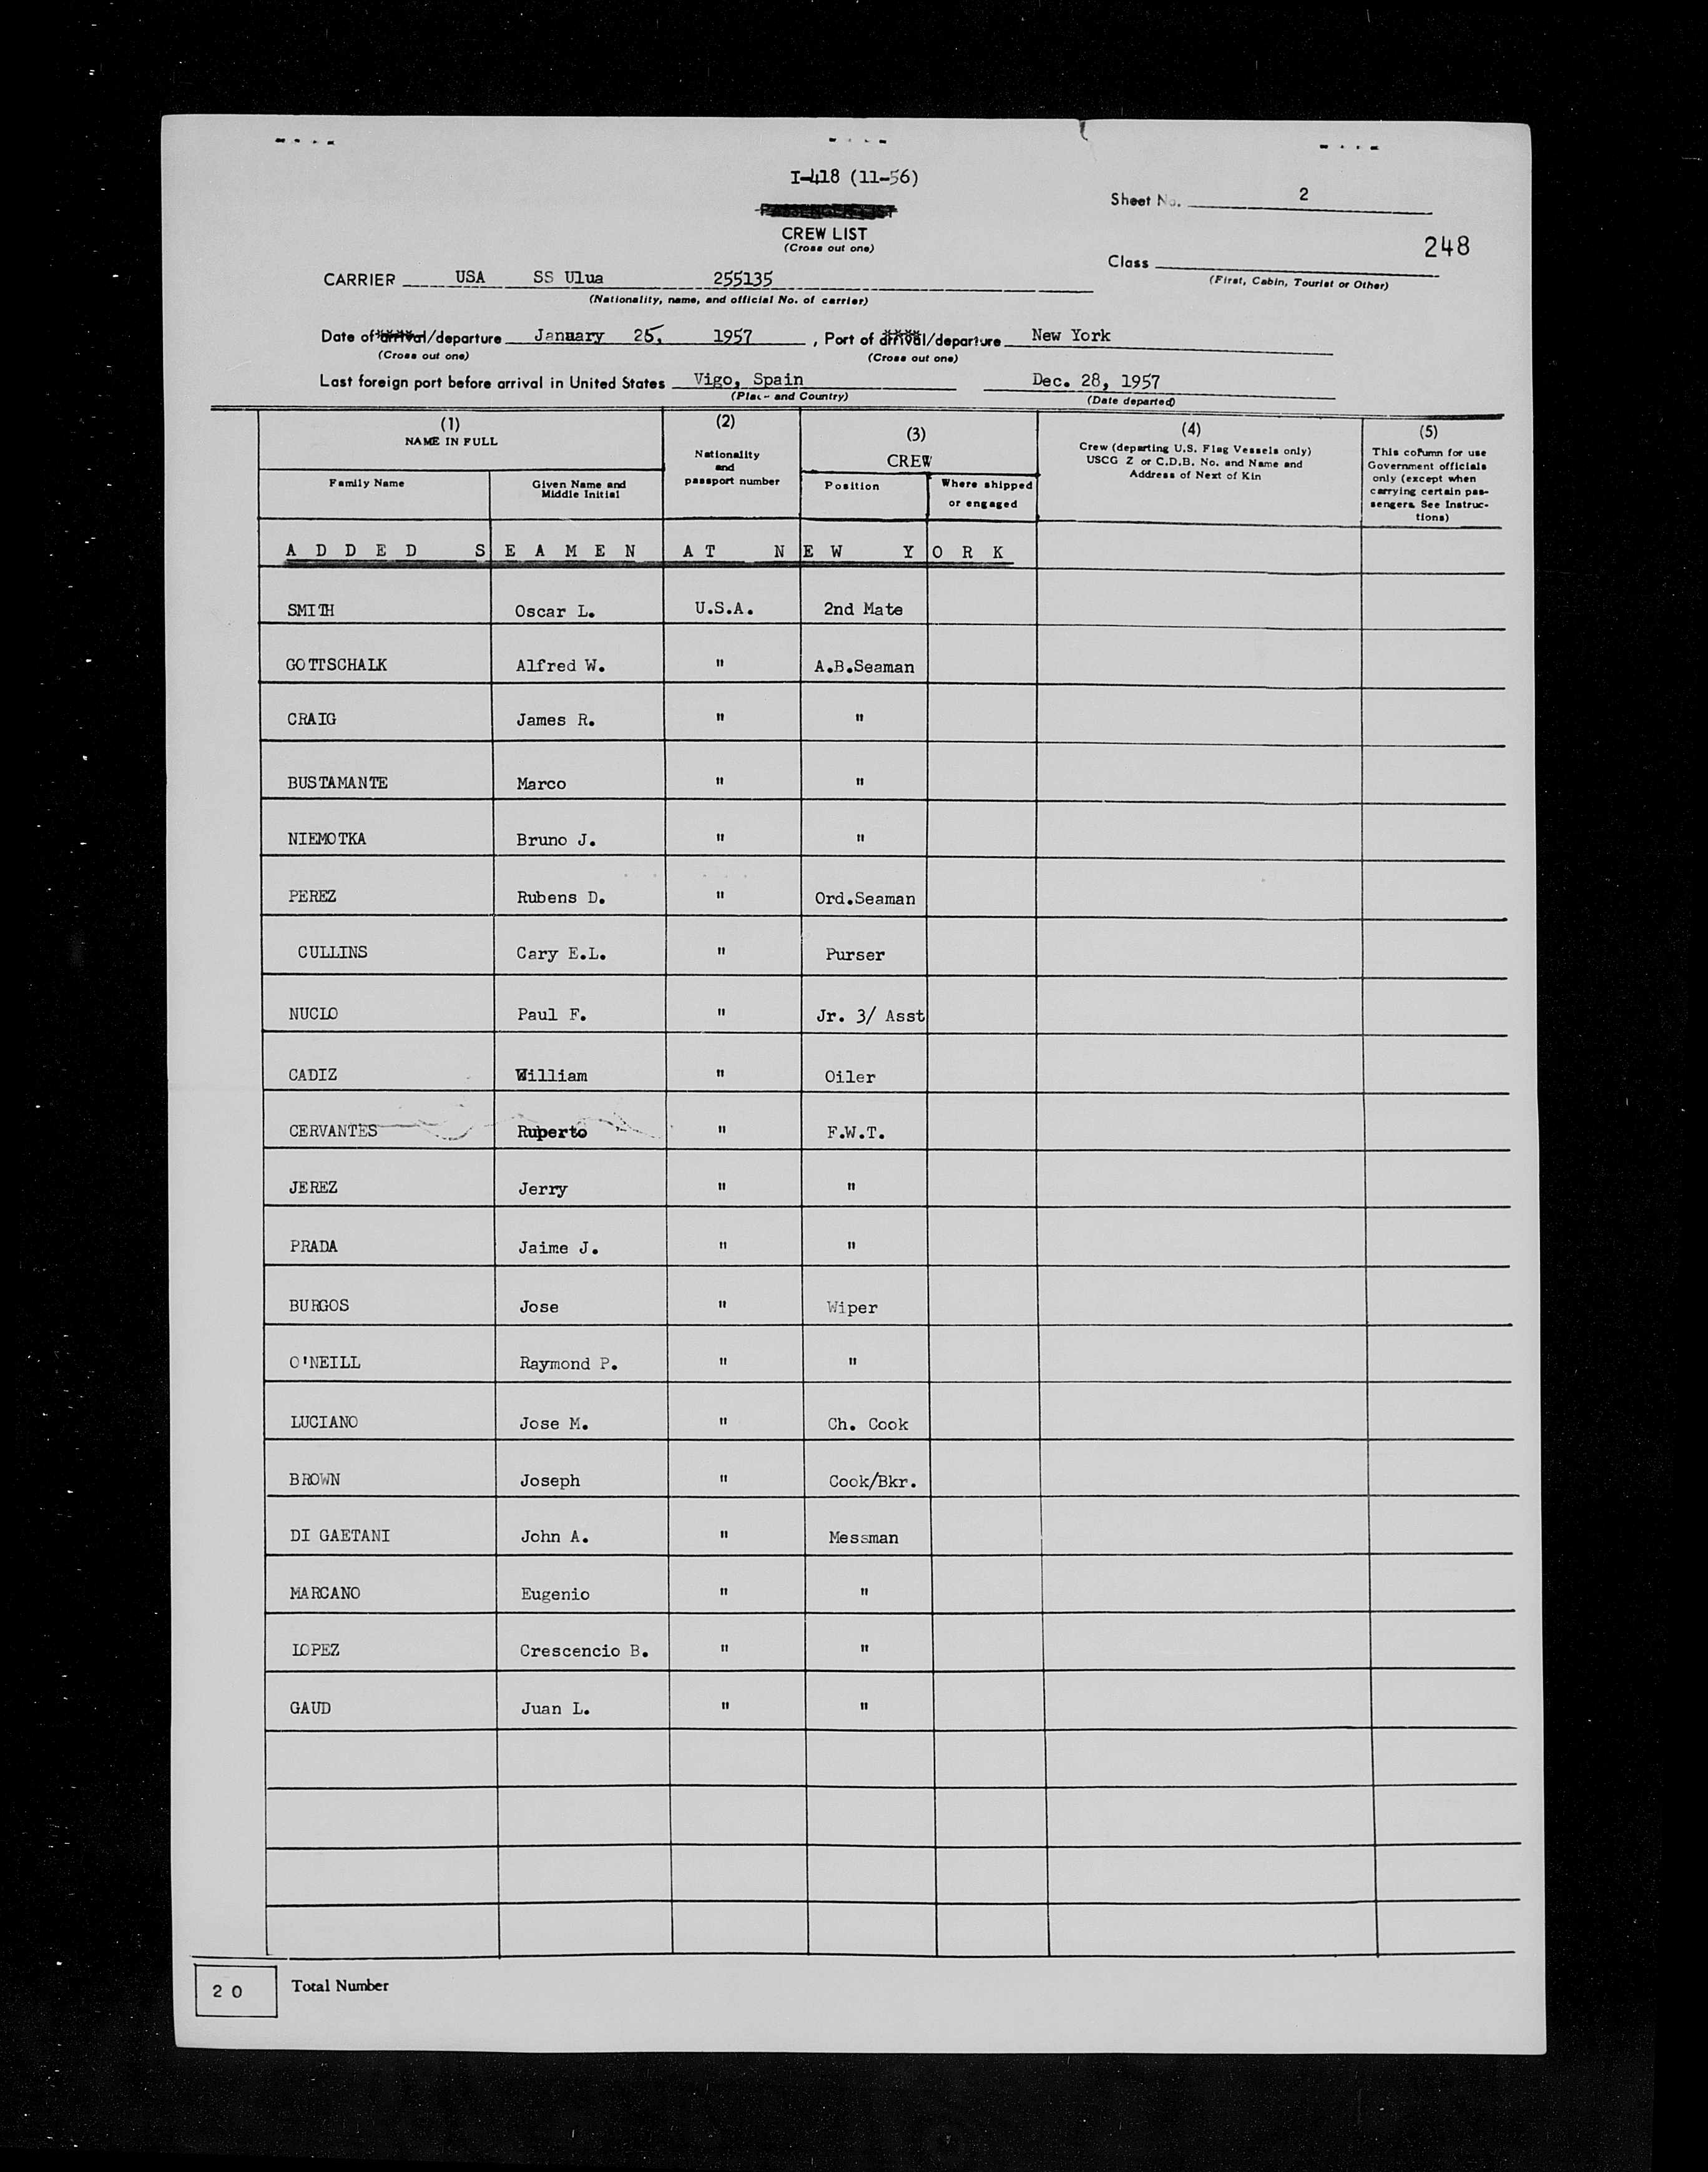 I-418 (11-56)
Sheet No. 2
PASSENGER LIST
CREW LIST
(Cross out one)
248
Class
(First, Cabin, Tourist or Other)
CARRIER USA SS Ulua 255135
(Nationality, name, and official No. of carrier)
Date of arrival/departure January 25, 1957, Port of arrival/departure New York
(Cross out one) (Cross out one)
Last foreign port before arrival in United States Vigo, Spain Dec. 28, 1957
(Place and Country) (Date departed)
(1) NAME IN FULL
Family Name
Given Name and Middle Initial
(2) Nationality and passport number
(3) CREW
Position
Where shipped or engaged
(4) Crew (departing U.S. Flag Vessels only) USCG Z or C.D.B. No. and Name and Address of Next of Kin
(5) This column for use Government officials only (except when carrying certain passengers. See Instructions)
ADDED SEAMEN AT NEW YORK
SMITH Oscar L. U.S.A. 2nd Mate
GOTTSCHALK Alfred W. " A.B.Seaman
CRAIG James R. " "
BUSTAMANTE Marco " "
NIEMOTKA Bruno J. " "
PEREZ Rubens D. " Ord.Seaman
CULLINS Cary E.L. " Purser
NUCLO Paul F. " Jr. 3/ Asst
CADIZ William " Oiler
CERVANTES Ruperto " F.W.T.
JEREZ Jerry " "
PRADA Jaime J. " "
BURGOS Jose " Wiper
O'NEILL Raymond P. " "
LUCIANO Jose M. " Ch. Cook
BROWN Joseph " Cook/Bkr.
DI GAETANI John A. " Messman
MARCANO Eugenio " "
LOPEZ Crescencio B. " "
GAUD Juan L. " "
20 Total Number